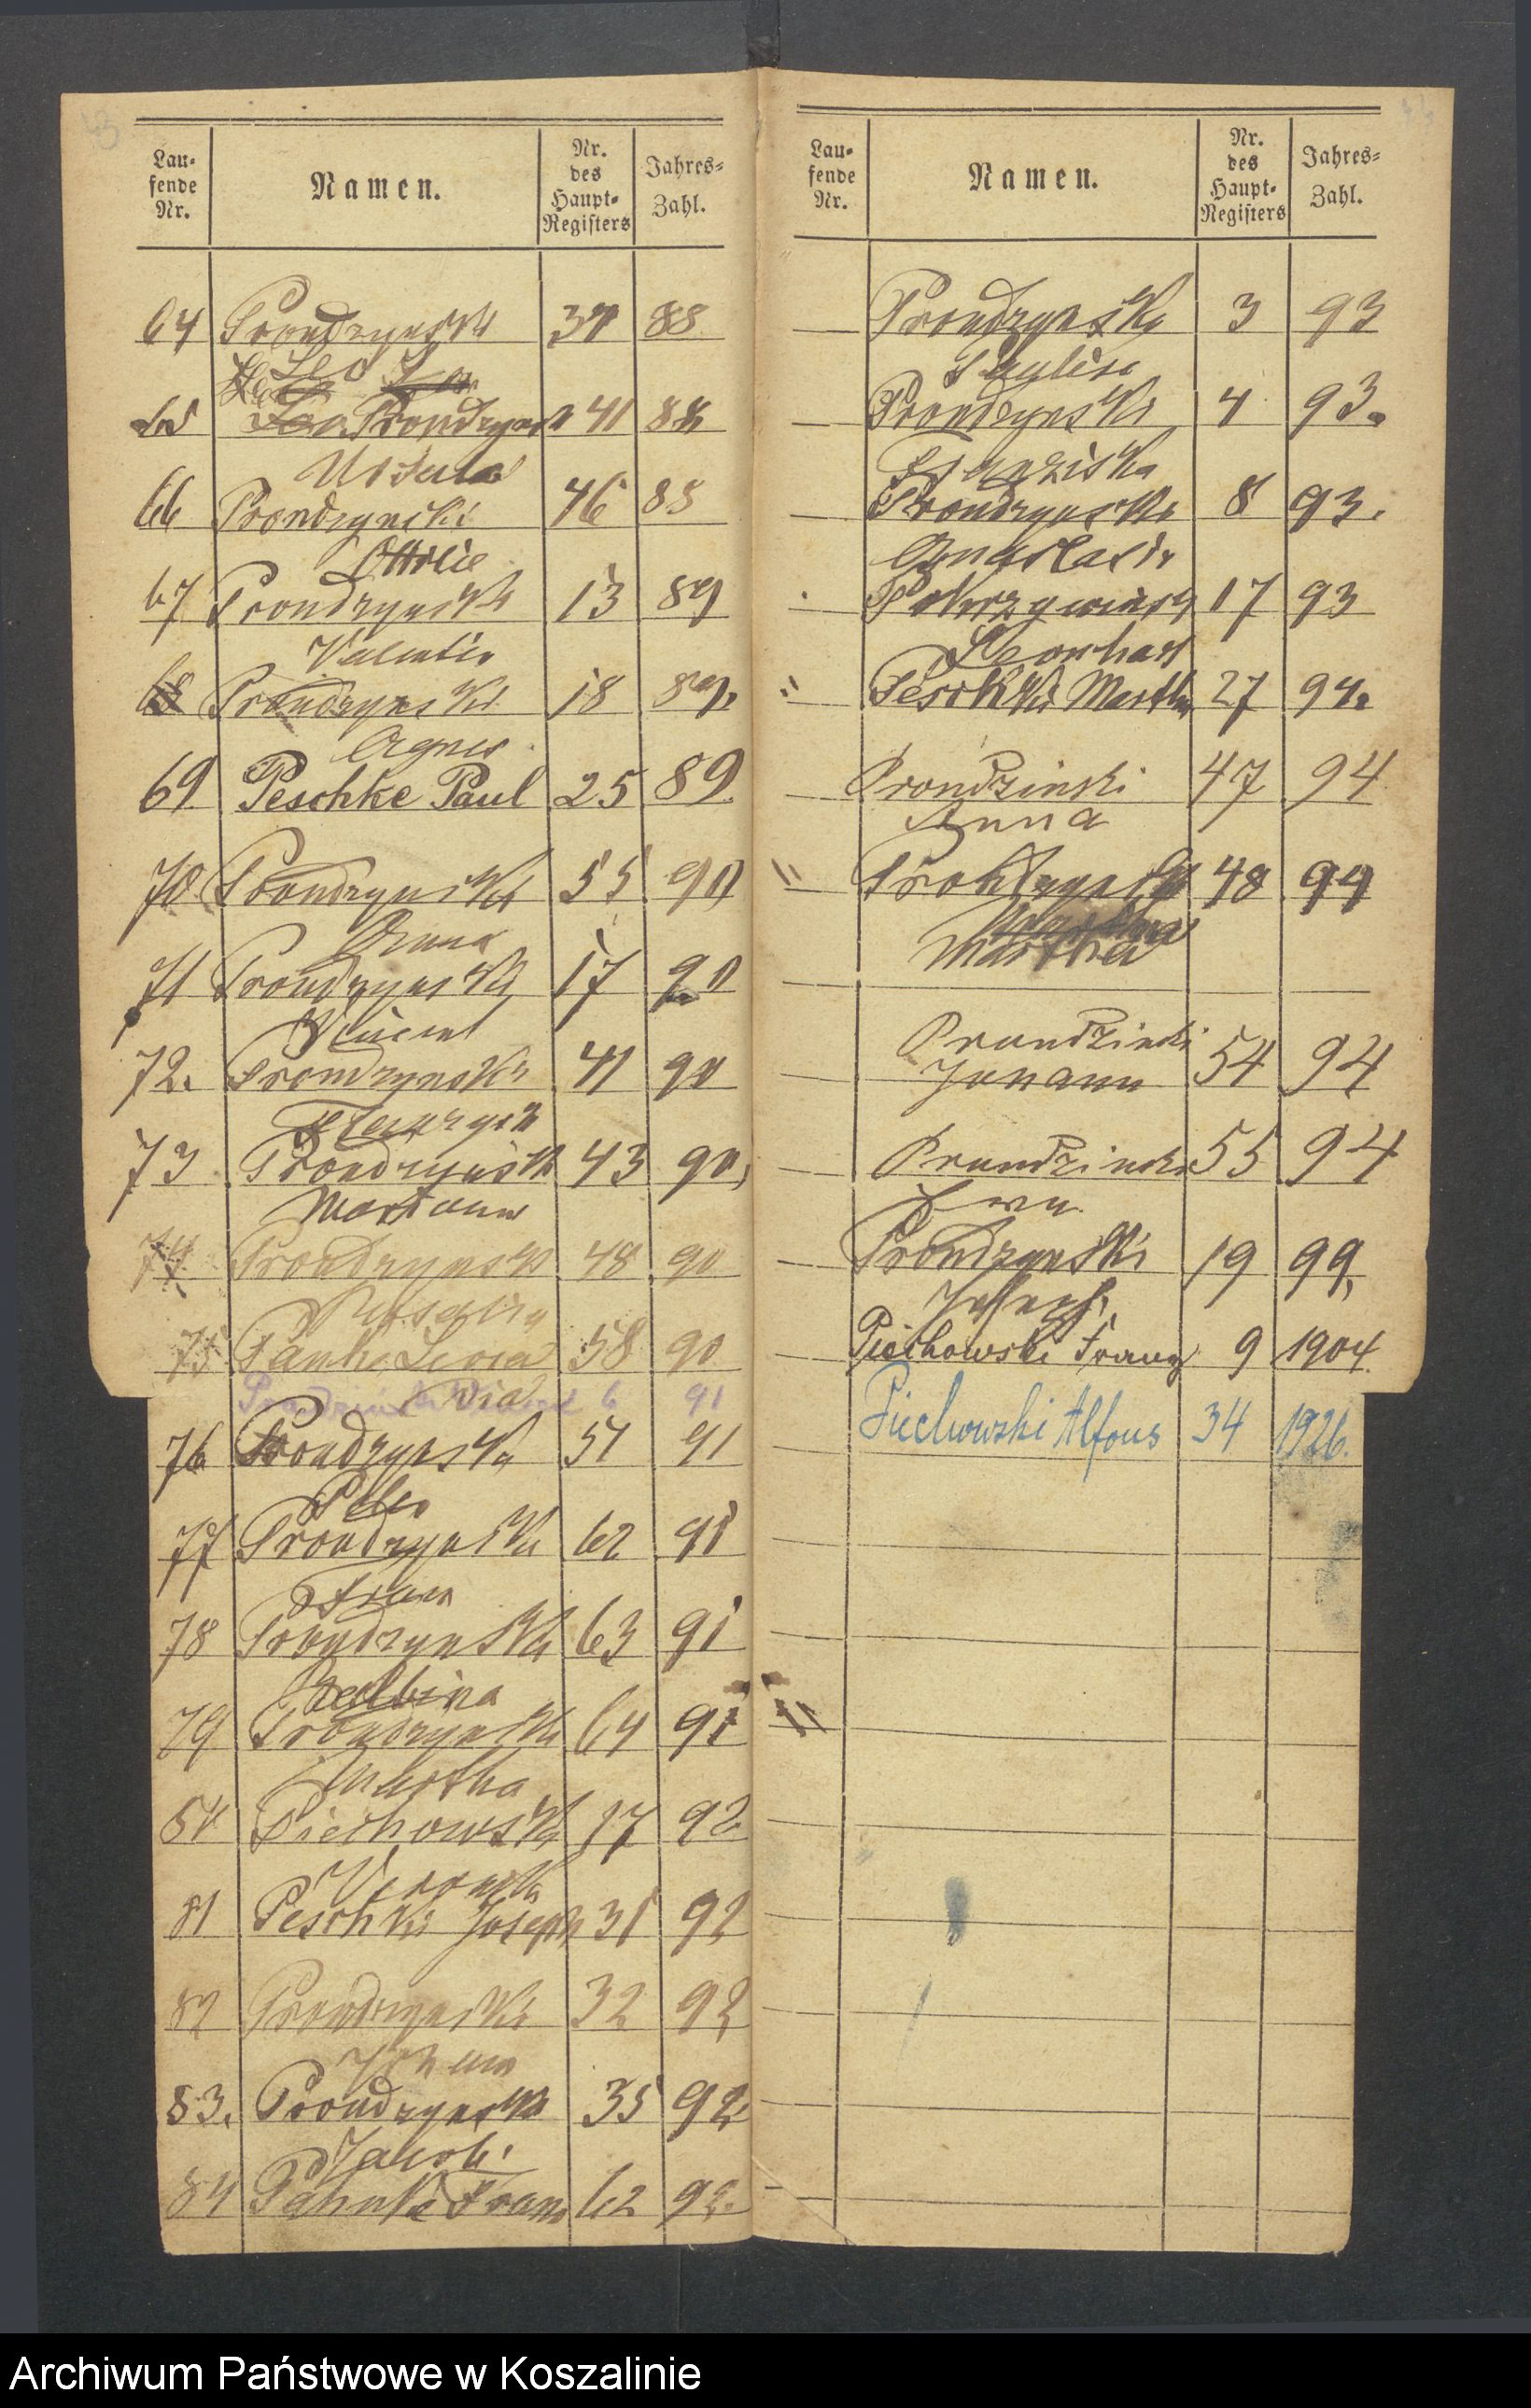 Lau-
fende
Nr.
Namen.
Nr.
des
Haupt-
Registers
Jahres-
Zahl.
64 Prondzynski 37 88
Leo
65 Prondzynsk 41 88
Ursula
66 Prondzynski 46 88
Ottilie
67 Prondzynski 13 89
Valentin
68 Prondzynski 18 89.
Agnes
69 Peschke Paul 25 89.
70 Prondzynski 55 90
Anna
71 Prondzynski 17 90
Vincent
72. Prondzynski 41 90
73 Prondzynsk 43 90,
Marianna
74 Prondzynsk 48 90
75 58 90
6 91
76 Prondzynski 51 91
Peter
77 Prondzynski 62 91
Franz
78 Prondzynski 63 91
Balbina
79 Prondzynski 64 91
Martha
Piechowski 17 92
Veronika
81 Peschke Joseph 31 92
82 Prondzynski 32 92
Johann
83. Prondzynski 35 92.
Jakob
84 Pahnke Franz 62 92.
Lau-
fende
Nr.
Namen.
Nr.
des
Haupt-
Registers
Jahres-
Zahl.
Prondzynski 3 93
Prondzynski 4 93.
Franziska
Prondzynski 8 93.
Anastasia
17 93
Leonhard
Peschke Martha 27 94.
Prondzinski 47 94
Anna
Prondzynski 48 94
Martha
Prondzinski
Johann 54 94
Prondzinski 55 94
Eva
Prondzynski 19 99,
Joseph
Piechowski Franz 9 1904.
Piechowski Alfons 34 1926.
Archiwum Państwowe w Koszalinie